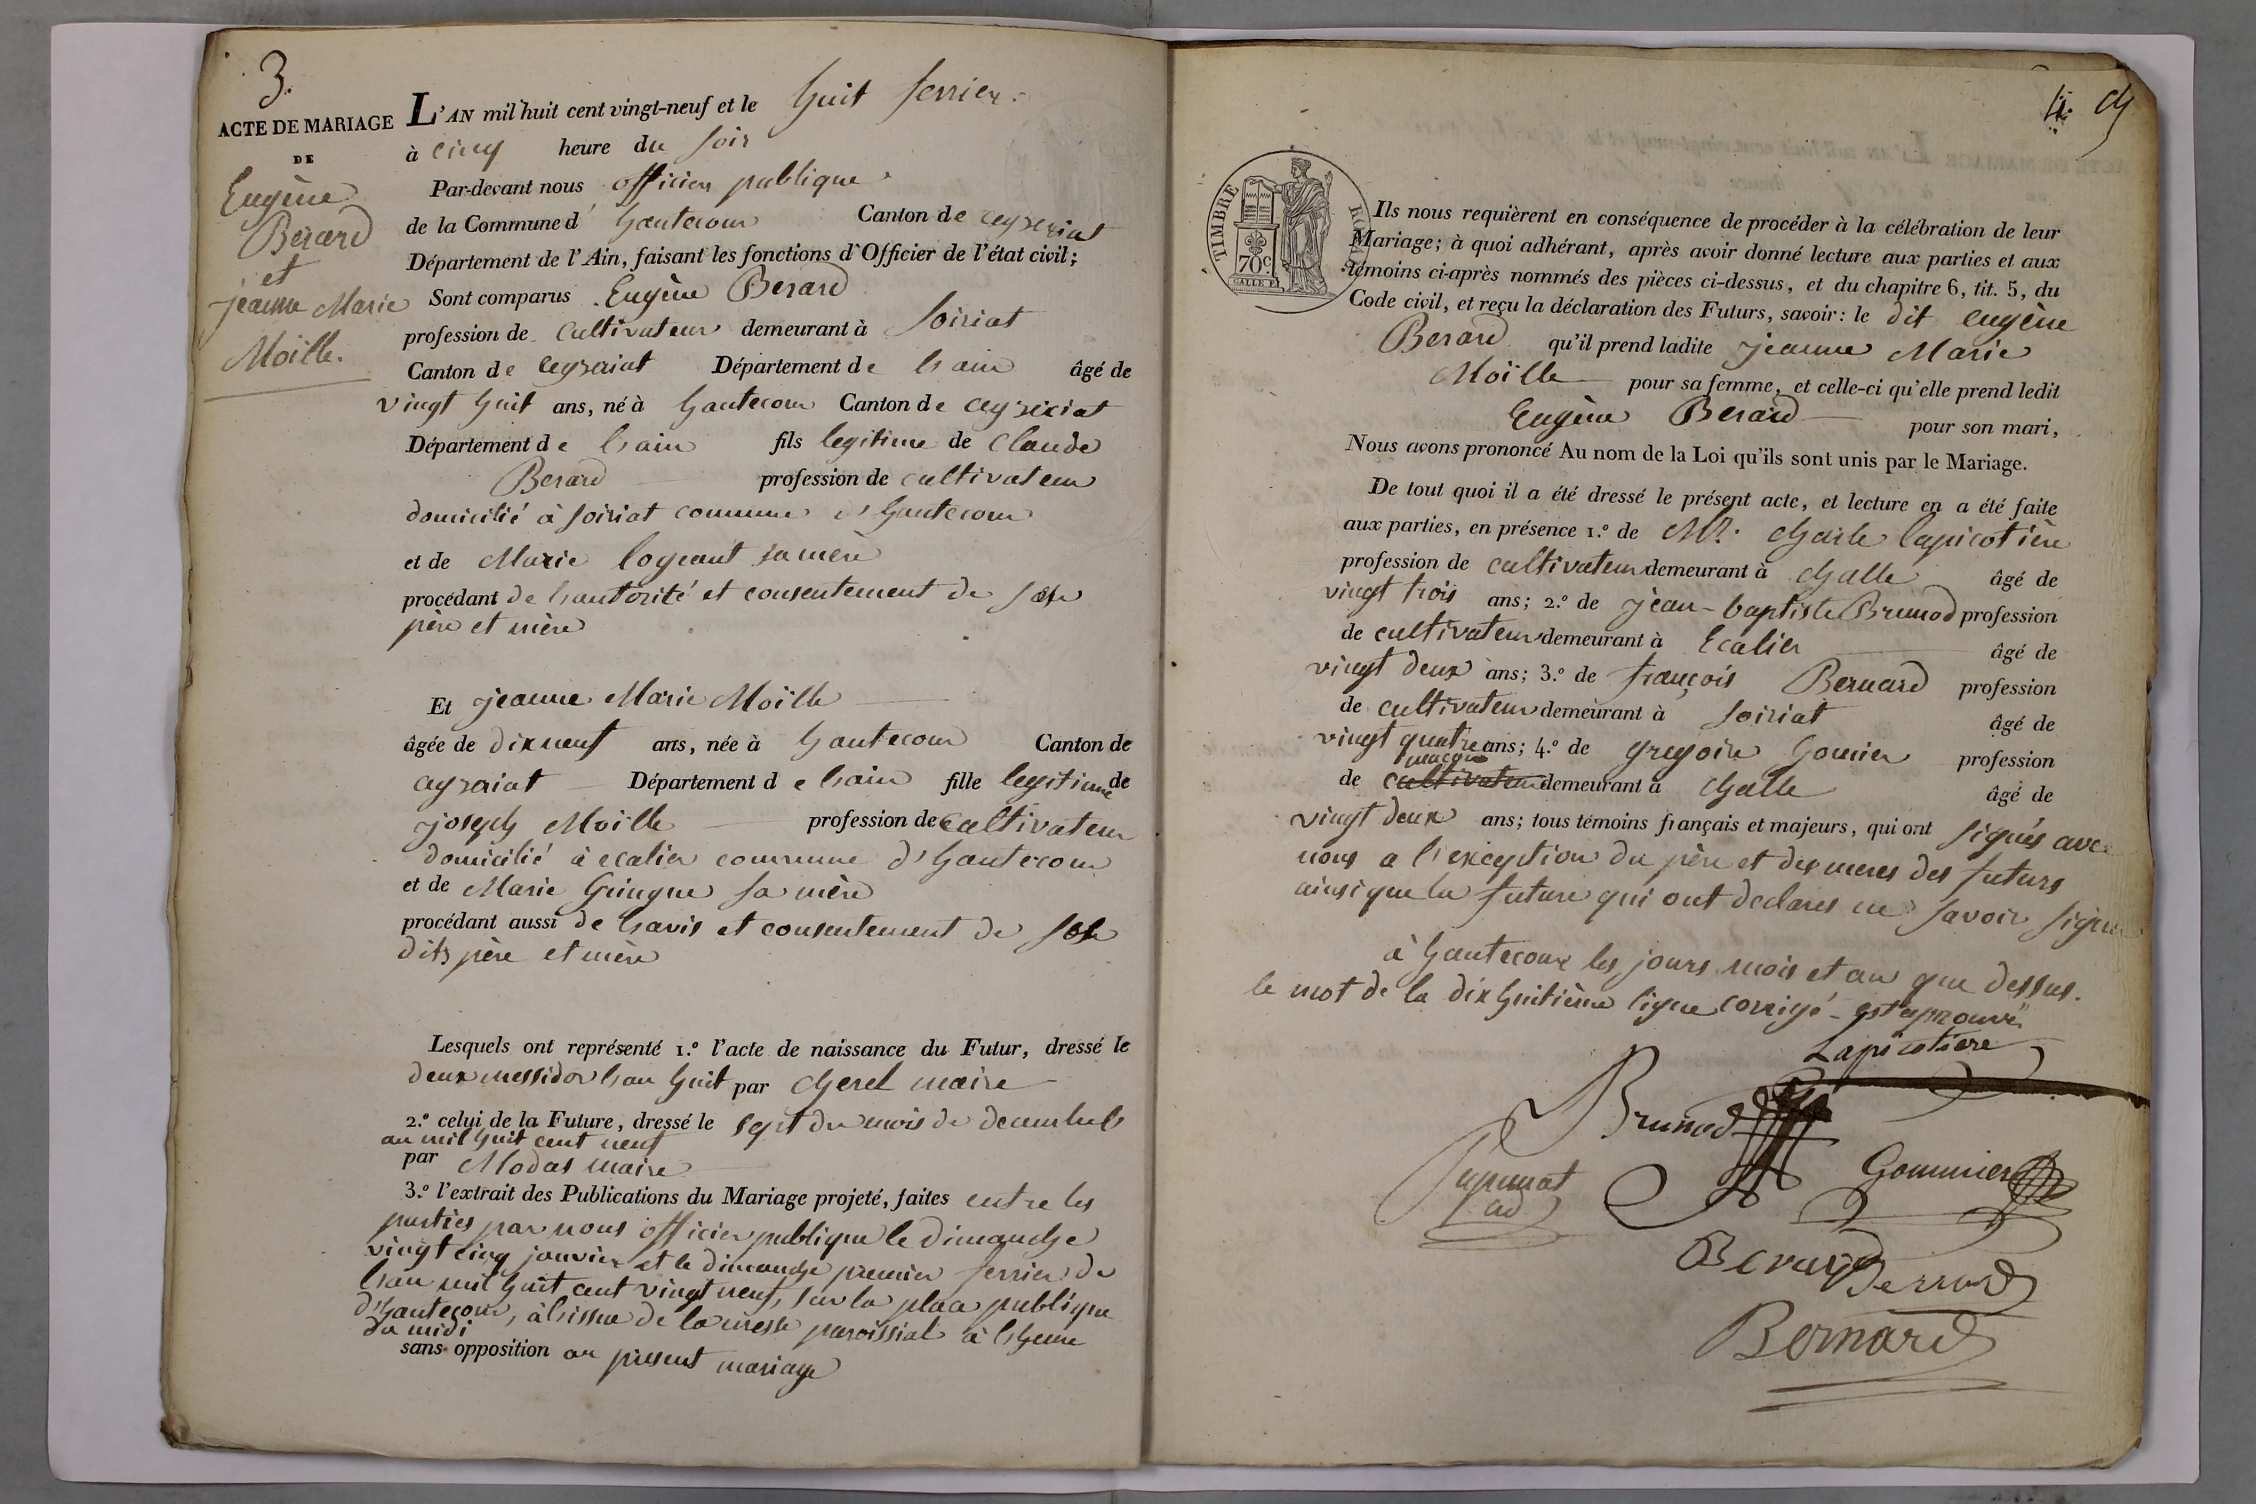 3.
ACTE DE MARIAGE
DE
Eugène
Berard
et
jeanne Marie
Moïlle.
L'AN mil huit cent vingt-neuf et le huit fevrier.
à cinq heure du soir
Par-devant nous officier publique
de la Commune d'hautecour Canton de ceyzeriat
Département de l'Ain, faisant les fonctions d'Officier de l'état civil;
Sont comparus Eugène Berard
profession de cultivateur demeurant à soiriat
Canton de ceyzeriat Département de l'ain âgé de
vingt huit ans, né à hautecour Canton de ceyzeriat
Département de l'ain fils legitime de claude
Berard profession de cultivateur
domicilié à soiriat commune d'hautecour
et de Marie logeant sa mère
procédant de l'autorité et consentement de ses
père et mère
Et jeanne Marie Moïlle
âgée de dix neuf ans, née à hautecour Canton de
ceyzeriat Département de l'ain fille legitime de
joseph Moïlle profession de cultivateur
domicilié à ecalier commune d'hautecour
et de Marie Guingue sa mère
procédant aussi de l'avis et consentement de ses
dits père et mère
Lesquels ont représenté 1.º l'acte de naissance du Futur, dressé le
deux messidor l'an huit par cherel maire
2.º celui de la Future, dressé le sept du mois de decembre l'
an mil huit cent neuf
par Modas maire
3.º l'extrait des Publications du Mariage projeté, faites entre les
parties par nous officier publique le dimanche
vingt cinq janvier et le dimanche premier fevrier de
l'an mil huit cent vingt neuf, sur la place publique
d'hautecour, à l'issue de la messe paroissial à l'heure
du midi
sans opposition au présent mariage
4.
TIMBRE ROYAL
70 C
Ils nous requièrent en conséquence de procéder à la célébration de leur
Mariage; à quoi adhérant, après avoir donné lecture aux parties et aux
témoins ci-après nommés des pièces ci-dessus, et du chapitre 6, tit. 5, du
Code civil, et reçu la déclaration des Futurs, savoir: le dit eugène
Berard qu'il prend ladite jeanne Marie
Moïlle pour sa femme, et celle-ci qu'elle prend ledit
Eugène Berard pour son mari,
Nous avons prononcé Au nom de la Loi qu'ils sont unis par le Mariage.
De tout quoi il a été dressé le présent acte, et lecture en a été faite
aux parties, en présence 1.º de Mr. charle lapicotière
profession de cultivateur demeurant à challe âgé de
vingt trois ans; 2.º de jean-baptiste Brunod profession
de cultivateur demeurant à Ecalier âgé de
vingt deux ans; 3.º de françois Bernard profession
de cultivateur demeurant à soiriat âgé de
vingt quatre ans; 4.º de gregoire Gomier profession
maçon
de cultivateur demeurant à challe âgé de
vingt deux ans; tous témoins français et majeurs, qui ont signés avec
nous a l'exception du père et des meres des futurs
ainsi que la future qui ont declarés ne savoir signer
à hautecour les jours mois et an que dessus.
le mot de la dix huitième ligne corrigé est aprouvé
Lapicotiere
Brunod
ad
Gommier
Berard
Berrard
Bernard